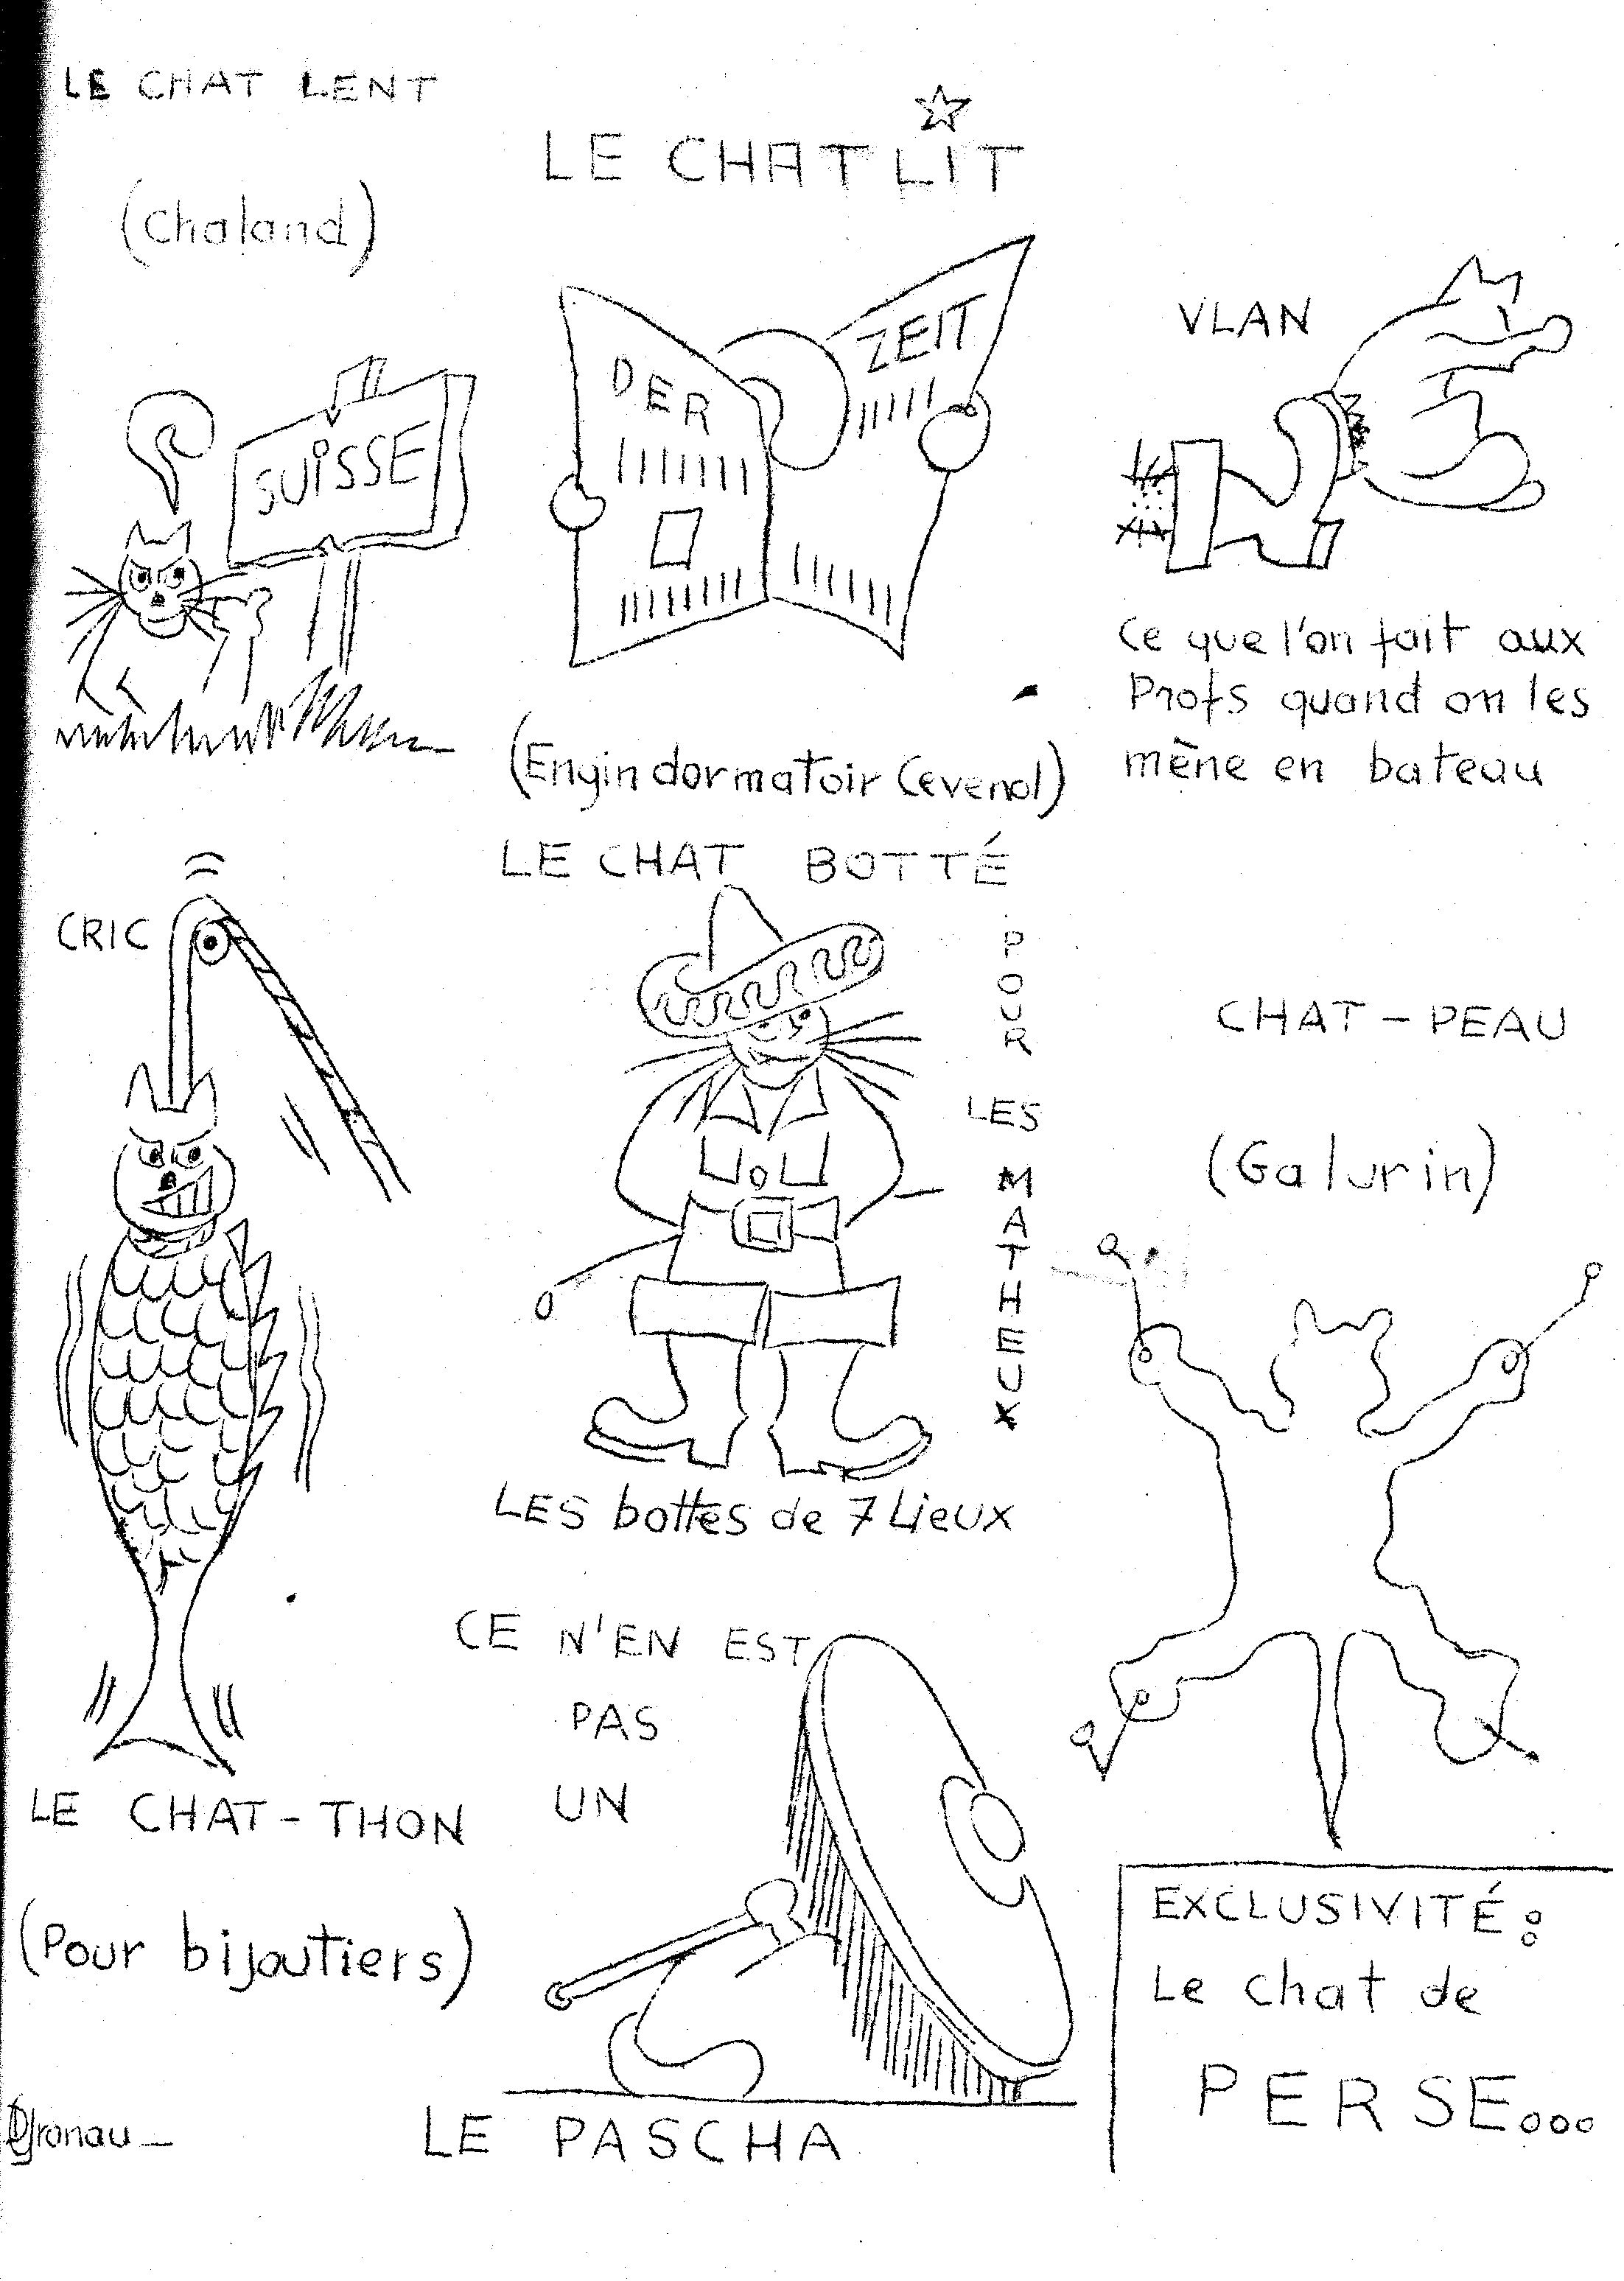 LE CHAT LENT
(Chaland)
SUiSSE
LE CHAT LIT
DER
ZEIT
(Engin dormatoir Cevenol)
VLAN
Ce que l'on fait aux
Profs quand on les
mène en bateau
CRIC
LE CHAT-THON
(Pour bijoutiers)
LE CHAT BOTTÉ
POUR
LES
MATHEUX
LES bottes de 7 Lieux
CHAT-PEAU
(Galurin)
CE N'EN EST
PAS
UN
LE PASCHA
EXCLUSIVITÉ:
Le chat de
PERSE...